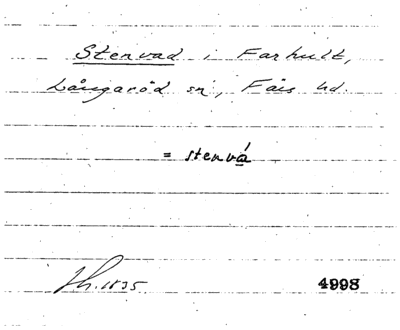 Stenvad i Farhult,
Långaröd sn, Färs hd.
= stenvá
Jh. 1835
4998